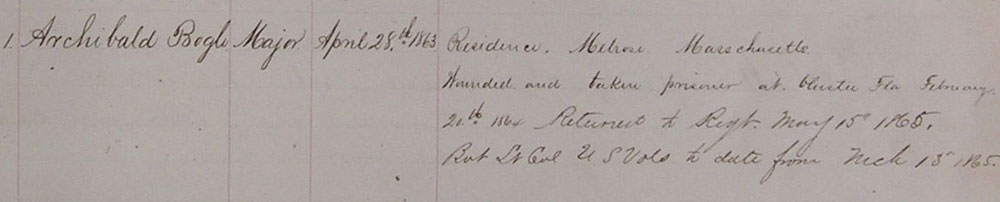 1. Archibald Bogle Major April 28.th 1863 Residence. Melrose Massachusetts.
Wounded and taken prisoner at Olustee Fla February.
20.th 1864 Returned to Regt. May 15" 1865.
Bvt Lt Col U S Vols to date from Mch 13" 1865.